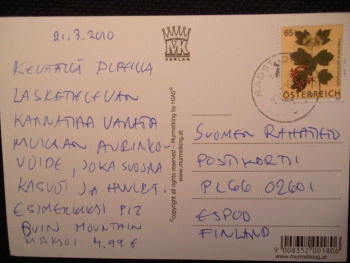 21.3.2010
KEVÄÄLLÄ ALPEILLA
LASKETTELEVAN
KANNATTAA VARATA
MUKAAN AURINKO-
VOIDE, JOKA SUOJAA
KASVOT JA HUULET.
ESIMERKIKSI PIZ
BUIN MOUNTAIN
MAKSOI 4,99 €
MK
VERLAG
©copyright all rights reserved - Murmelking by HIAS®
www.murmelking.at
65
ÖSTERREICH
SUOMEN RAHATIETO
POSTIKORTTI
PL 66 02601
ESPOO
FINLAND
9 008352 001806
www.murmelking.at